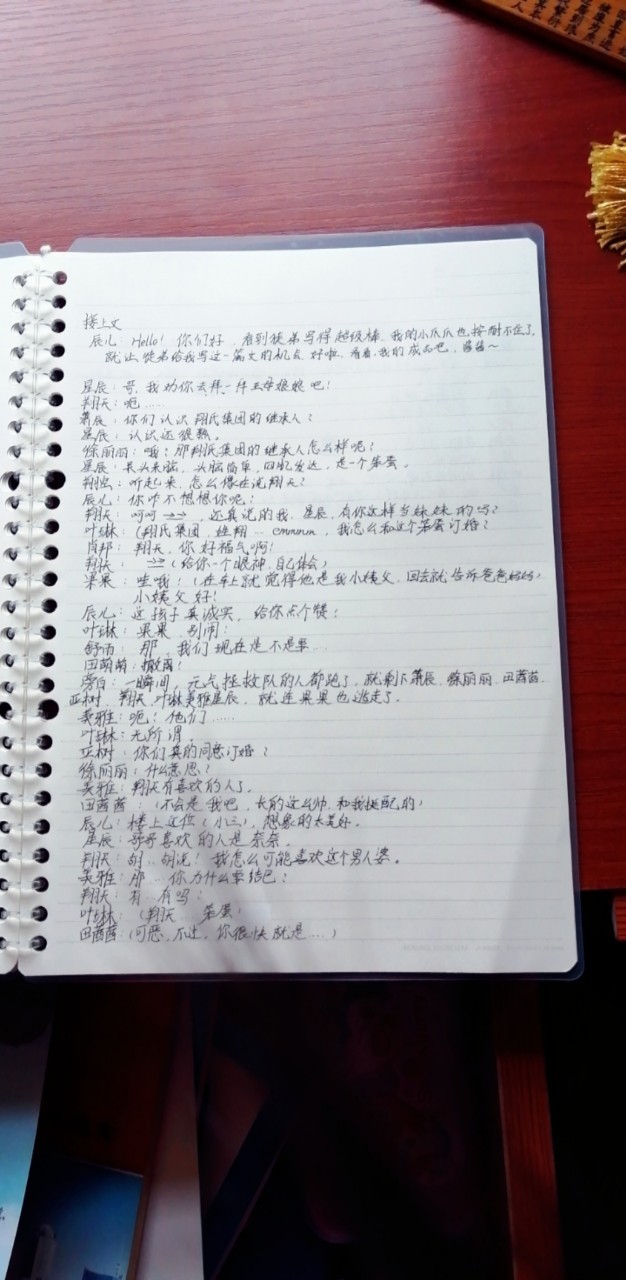 接上文
辰儿：Hello！你们好，看到徒弟写得超级棒，我的小爪爪也按耐不住了，
就让徒弟给我写这一篇文的机会，好啦，看看我的成品吧，
星辰：哥，我劝你去拜一拜王母娘娘吧！
翔天：呃……
萧辰：你们认识翔氏集团的继承人？
星辰：认识，还很熟。
徐丽丽：哦！那翔氏集团的继承人怎么样呢？
星辰：呆头呆脑，头脑简单，四肢发达，是一个笨蛋。
听起来，怎么像在说翔天？
辰儿：你咋不想想你呢！
翔天：呵呵→→，还真说的我，星辰，有你这样当妹妹的吗？
叶琳：（翔氏集团，姓翔… emmmm，我怎么和这个笨蛋订婚？
肖邦：翔天，你好福气啊！
翔天：→→（给你一个眼神，自己体会）
果果：哇哦！（在车上就觉得他是我小姨父，回去就告诉爸爸妈妈）
小姨父好！
辰儿：这孩子真诚实，给你点个赞！
叶琳：果果，别闹！
舒雨：那，我们现在是不是要…
田萌萌：撤离！
旁白：一瞬间，元气拯救队的人都跑了，就剩下萧辰、徐丽丽、田茜茜、
亚树、翔天、叶琳美雅星辰，就连果果也逃走了。
美雅：呃！他们……
叶琳：无所谓，
亚树：你们真的同意订婚？
徐丽丽：什么意思？
美雅：翔天有喜欢的人了。
田茜茜：（不会是我吧，长的这么帅，和我挺配的）
辰儿：楼上这位（小三），想象的太美好。
星辰：哥哥喜欢的人是奈奈。
翔天：胡…胡说！我怎么可能喜欢这个男人婆。
美雅：那…你为什么要结巴？
翔天：有…有吗？
叶琳：（翔天 笨蛋）
田茜茜：（可恶，不过，你很快就是……）